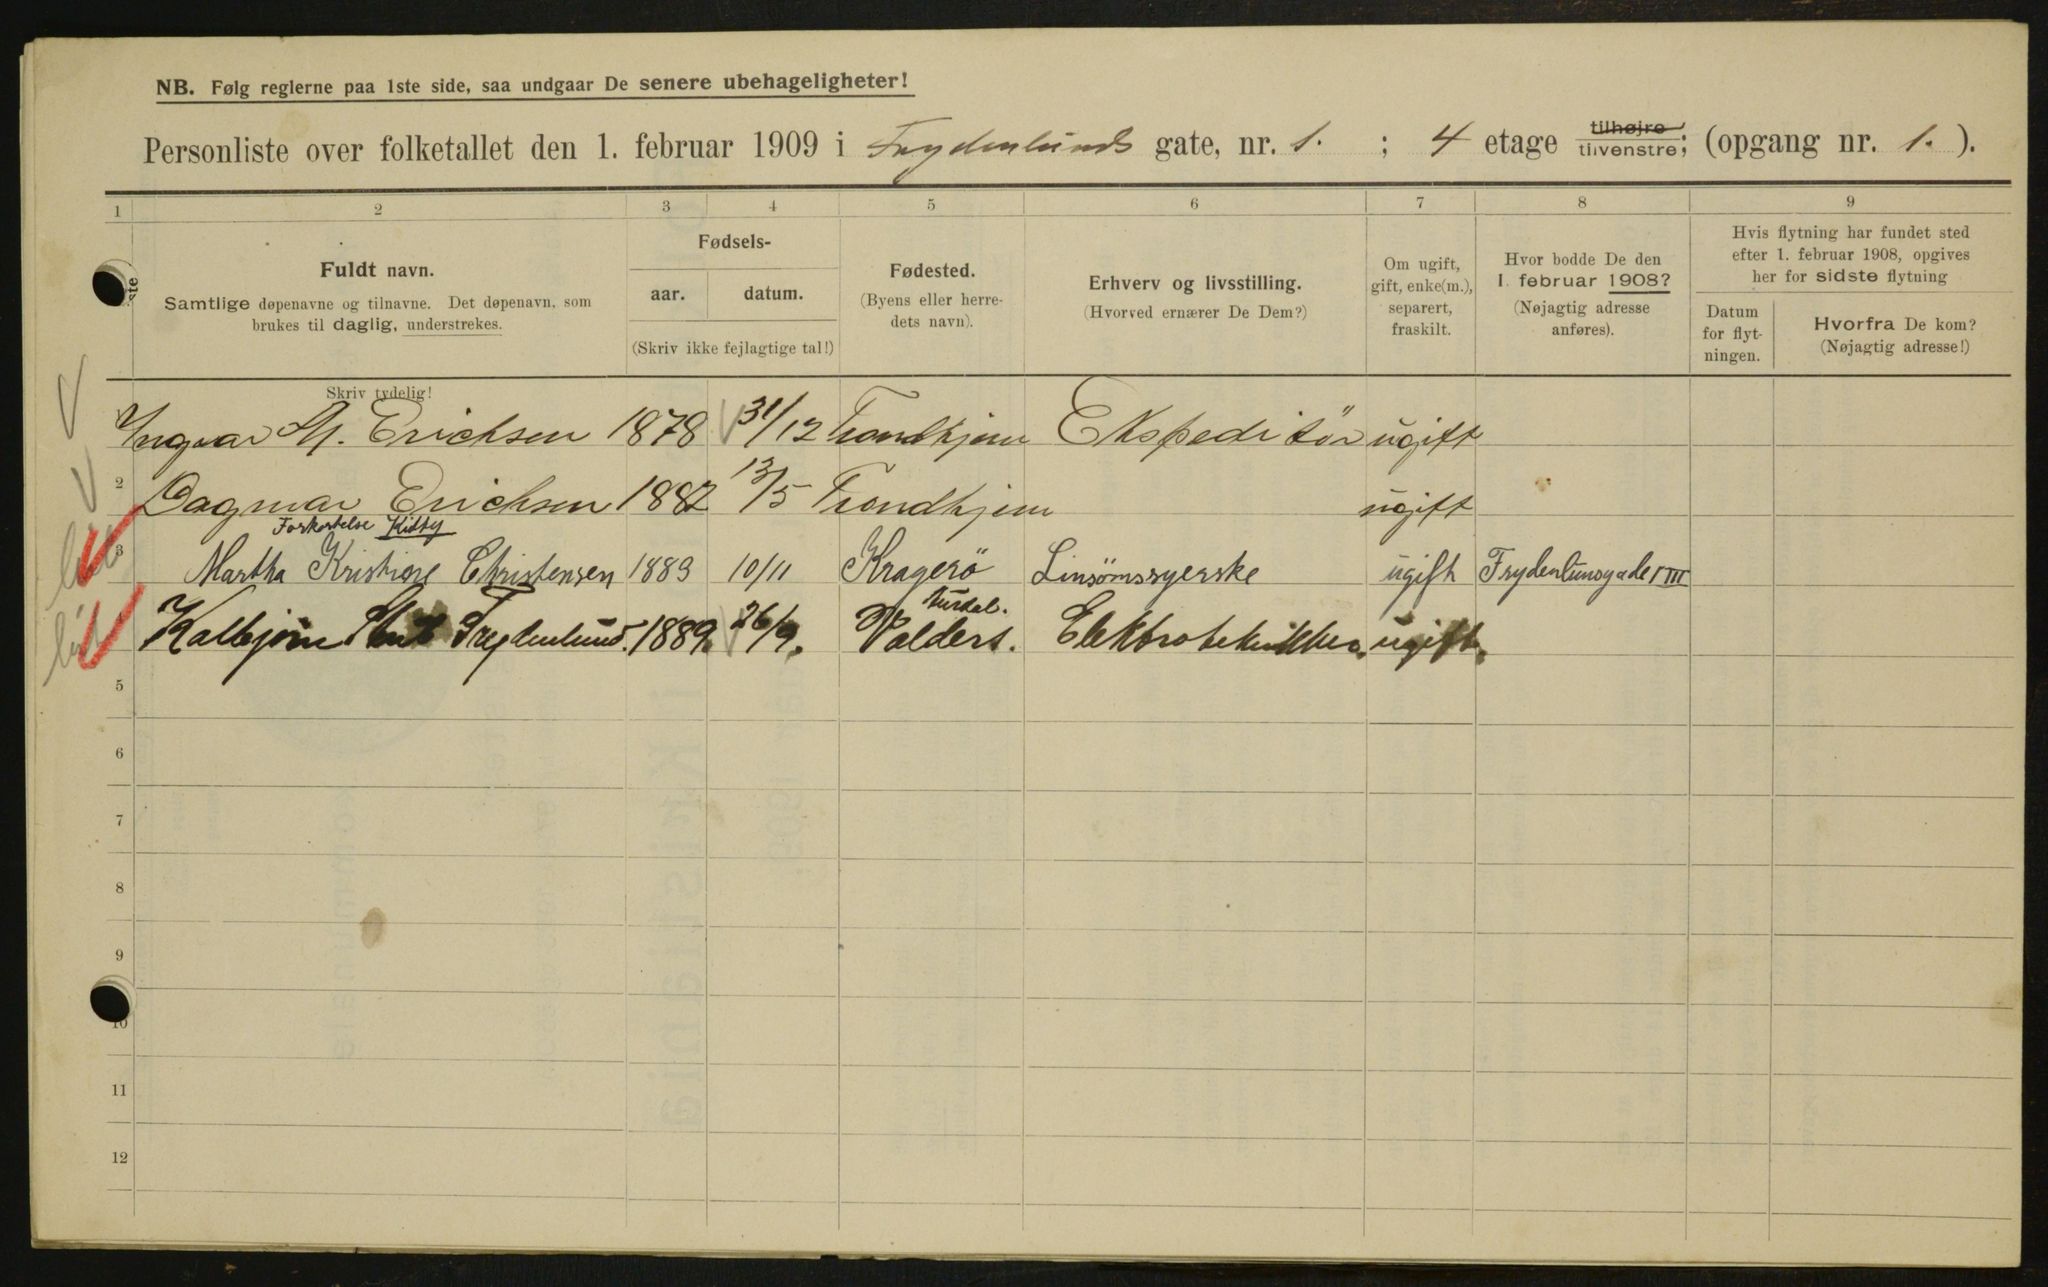 NB. Følg reglerne paa 1ste side, saa undgaar De senere ubehageligheter!
Personliste over folketallet den 1. februar 1909 i Frydenlunds gate, nr. 1. ; 4 etage tilhøjre tilvenstre; (opgang nr. 1. ).
1 2 3 4 5 6 7 8 9
Fuldt navn.
Samtlige døpenavne og tilnavne. Det døpenavn, som
brukes til daglig, understrekes.
Skriv tydelig!
Fødsels-
aar. datum.
(Skriv ikke fejlagtige tal!)
Fødested.
(Byens eller herre-
dets navn).
Erhverv og livsstilling.
(Hvorved ernærer De Dem?)
Om ugift,
gift, enke(m.),
separert,
fraskilt.
Hvor bodde De den
1. februar 1908?
(Nøjagtig adresse
anføres).
Hvis flytning har fundet sted
efter 1. februar 1908, opgives
her for sidste flytning
Datum
for flyt-
ningen.
Hvorfra De kom?
(Nøjagtig adresse!)
Ingvar M. Erichsen 1878 31/12 Trondhjem Ekspeditör ugift
2 Dagmar Erichsen 1882 13/5 Trondhjem ugift
Forkortelse Kitty
3 Martha Kristine Christensen 1883 10/11 Kragerö Linsömssyerske ugift Frydenlunsgade 1 III
Aurdal.
Kolbjørn Frydenlund. 1889. 26/9. Valders. Elektrotekniker. ugift.
5
6
7
8
9
10
11
12